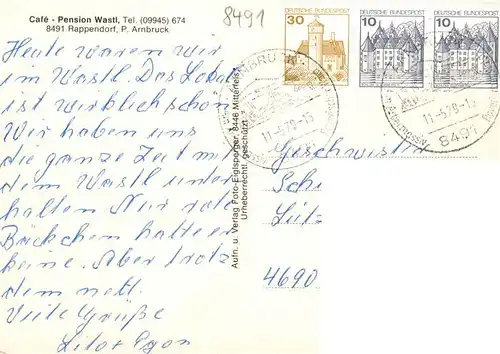 Café - Pension Wastl, Tel. (09945) 674
8491 Rappendorf, P. Arnbruck
8491
Heute waren wir
im Wastl. Das Lokal
ist wirklich schön
Wir haben uns
die ganze Zeit mit
dem Wastl unter
halten Nur rote
Bäckchen hatte er
keine. Aber trotz
dem nett.
Viele Grüße
Lilo + Egon
Aufn. u. Verlag Foto-Eiglsperger, 8446 Mitterfels
Urheberrechtl. geschützt
DEUTSCHE BUNDESPOST
30
DEUTSCHE BUNDESPOST
10
DEUTSCHE BUNDESPOST
10
11.-5.79.-15
11.-5.79.-15
8491
Geschwister
Sch
Lütz
4690